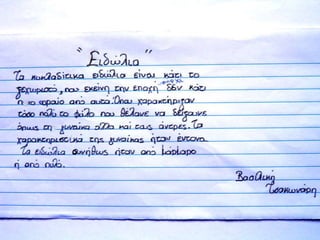 "Ειδώλιο"
Τα κυκλαδίτικα ειδώλια είναι κάτι το
ξεχωριστό, που εκείνη την εποχή υπήρχε δεν κάτι
πιο ωραίο από αυτά. Όπως χαρακτήριζαν
τόσο πολύ το φύλο που θέλανε να δείξουνε
όπως τη γυναίκα αλλά και τους άντρες. Τα
χαρακτηριστικά της γυναίκας ήταν έντονα.
Τα ειδώλια συνήθως ήταν από μάρμαρο
ή από πηλό.
Βασιλική
Τσακωνάρη